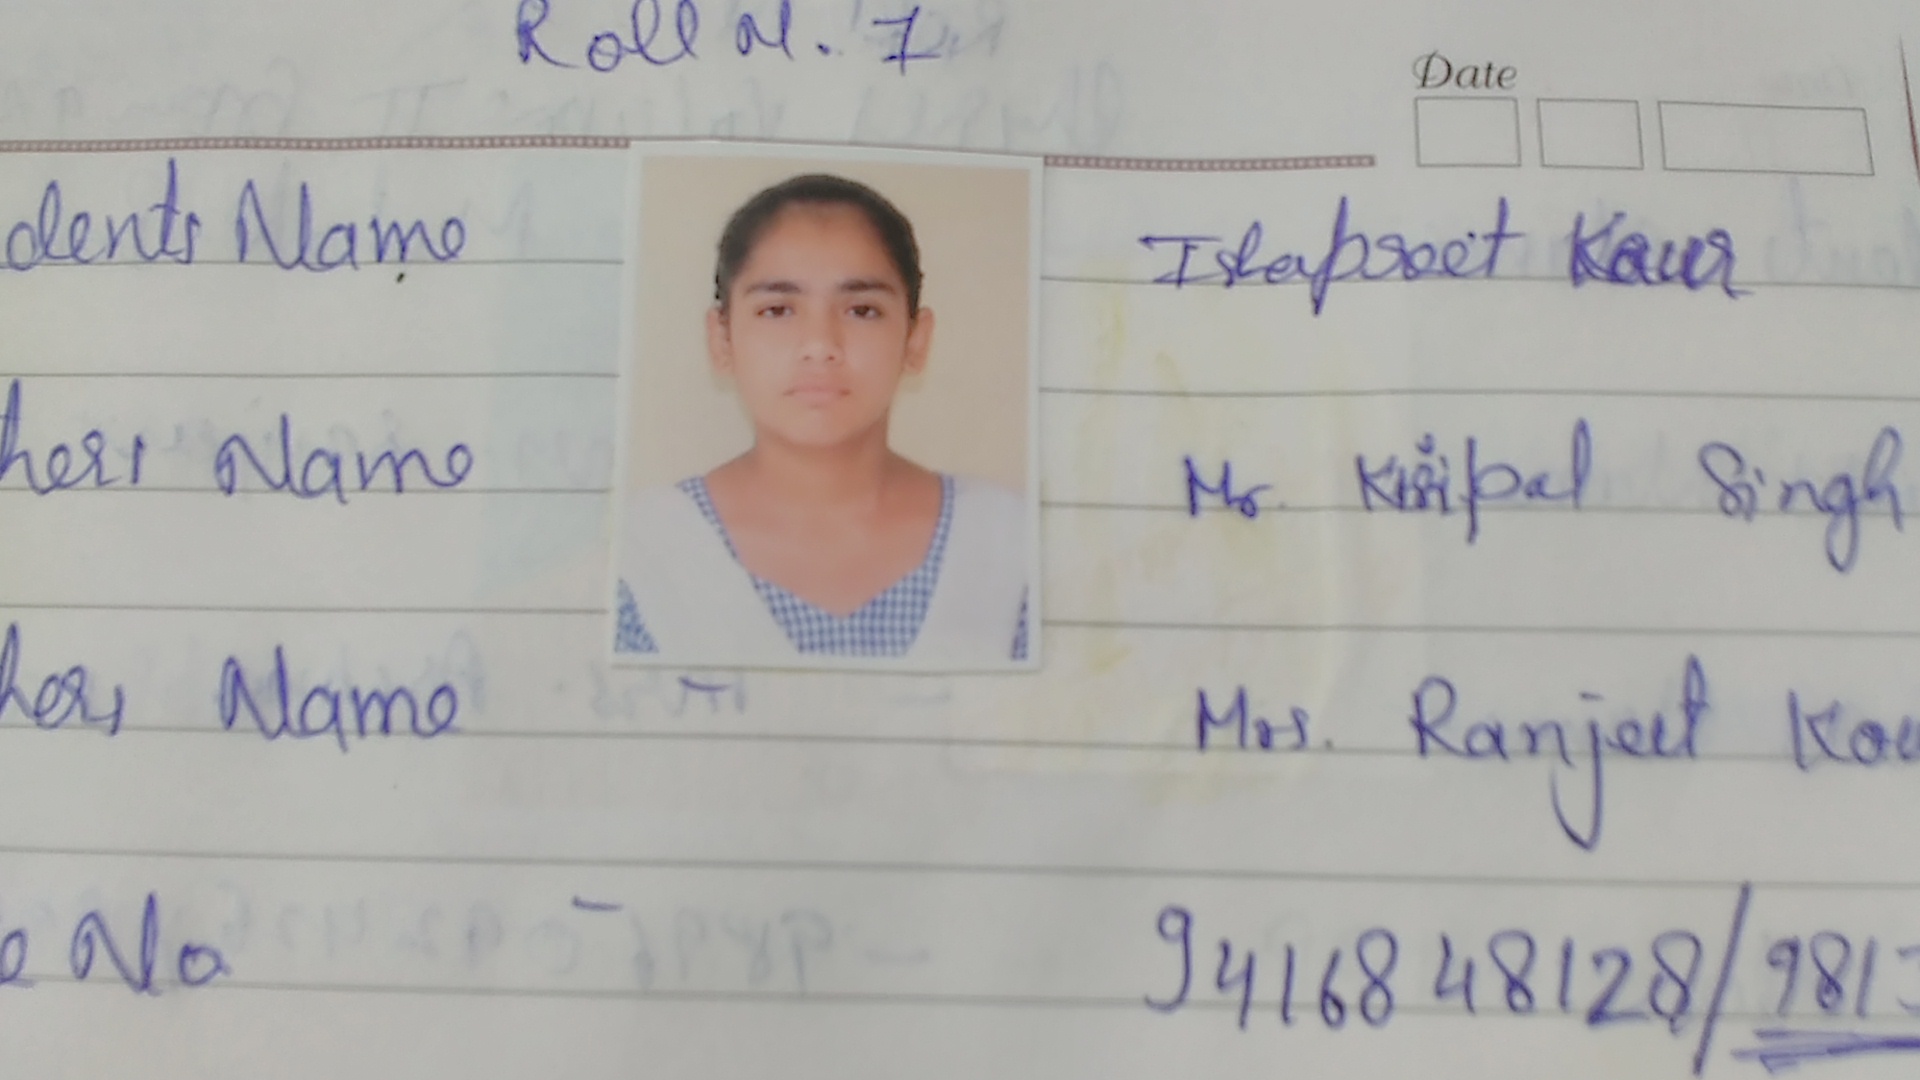 Roll N. 7
Date
dents Name Istapreet Kaur
hers Name Mr. Kripal Singh
hers Name Mrs. Ranjeet Kau
No - 9416848128/981